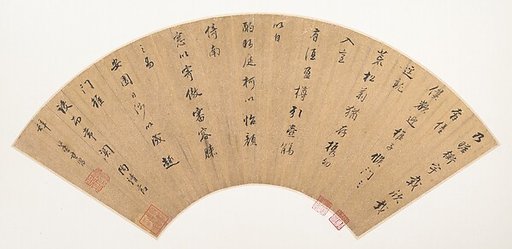 乃瞻衡宇載欣載
奔僮
僕歡迎稚子候門三
逕就
荒松菊猶存攜幼
入室
有酒盈樽引壺觴
以自
酌眄庭柯以怡顏
倚南
窗以寄傲審容膝
之易
安園日涉以成趣
門雖
設而常關
辭